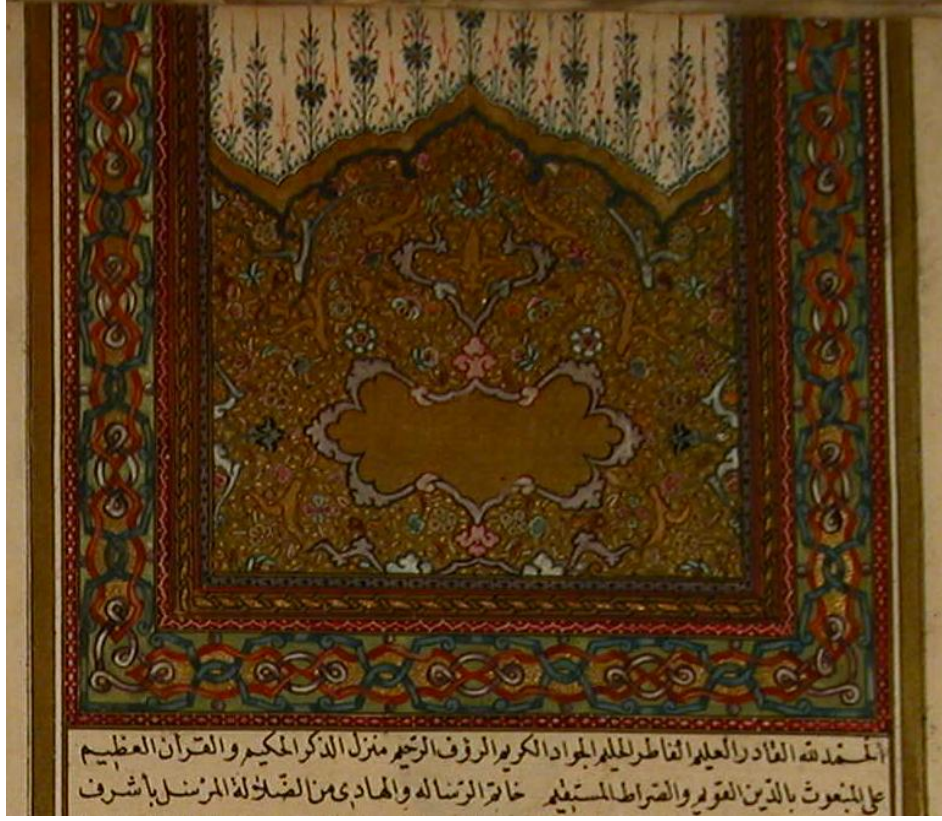 الحمد لله القادر العليم الفاطر الحليم الجواد الكريم الرؤف الرحيم منزل الذكر الحكيم والقرآن العظيم
على المبعوث بالدين القويم والصراط المستقيم خاتم الرساله والهادى من الضلالة المرسل بأشرف